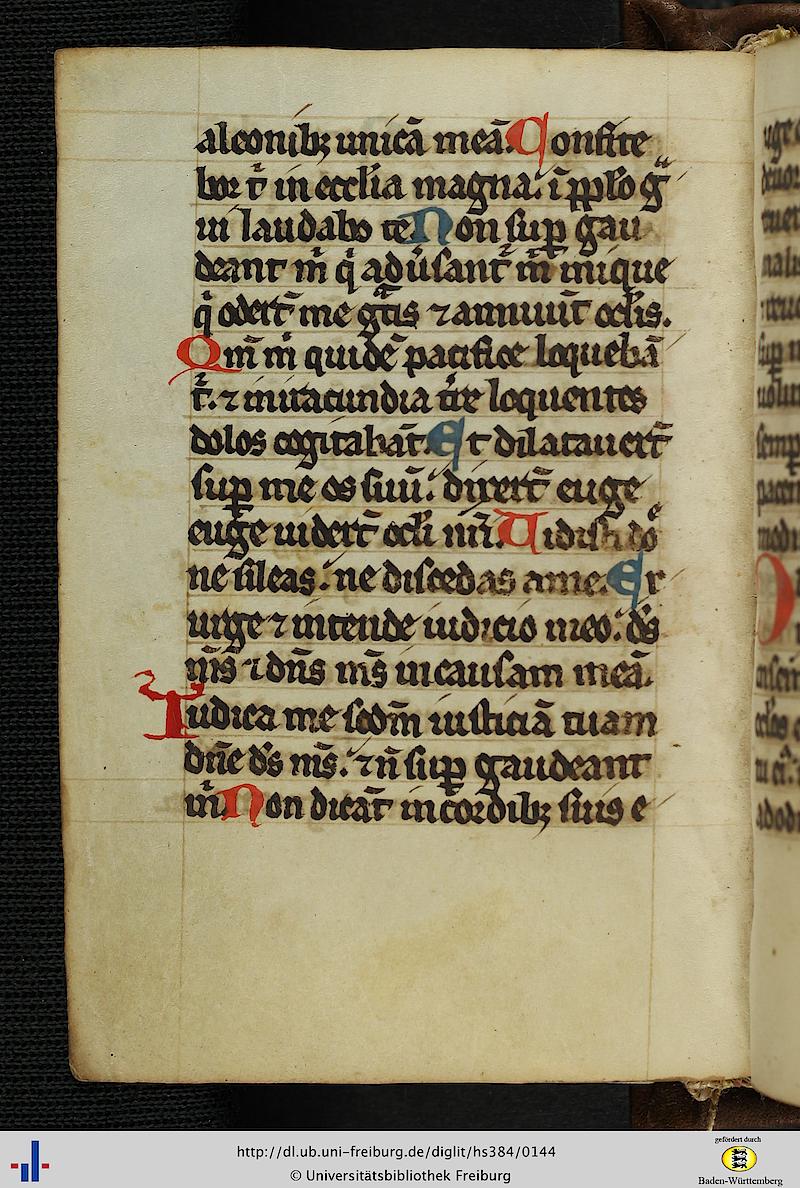 aleonibꝫ unicā meā. Confite
bor t̄ in eccl̄ia magna. ī pp̄lo gͣ
ui laudabo te. Non sup̄ gau
deant m̄ q̇ adūsant̄ m̄ inique
q̇ odert̄ me gͣtis ⁊ annuūt ocl̄is.
Qm̄ m̄ quidē pacifice loquebā
t̄. ⁊ in iracundia tr̄e loquentes
dolos cogitabāt. Et dilatauert̄
sup̄ me os suū. dixert̄ euge
euge uidert̄ ocl̄i nr̄i. Uidisti dō
ne sileas. ne discedas a me. Ex
urge ⁊ intende iudicio meo. ds̄
ms̄ ⁊ dn̄s ms̄ in causam meā.
Iudica me scd̄m iusticiā tuam
dn̄e ds̄ ms̄. ⁊ n̄ sup̄ gaudeant
m̄. Non dicāt in cordibꝫ suis e
http://dl.ub.uni-freiburg.de/diglit/hs384/0144
© Universitätsbibliothek Freiburg
gefördert durch
Baden-Württemberg